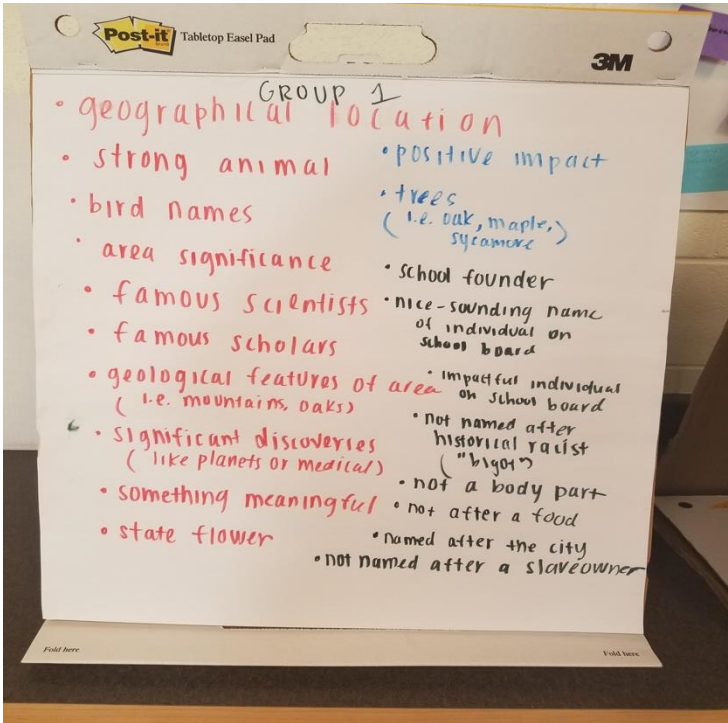 Post-it Tabletop Easel Pad
3M
GROUP 1
• geographical location
• strong animal
• bird names
• area significance
• famous scientists
• famous scholars
• geological features of area
( i.e. mountains, oaks)
• significant discoveries
( like planets or medical)
• something meaningful
• state flower
• positive impact
• trees
( i.e. oak, maple, )
sycamore
• school founder
• nice-sounding name
of individual on
school board
• impactful individual
on school board
• not named after
historical racist
("bigot")
• not a body part
• not after a food
• named after the city
• not named after a slaveowner
Fold here
Fold here